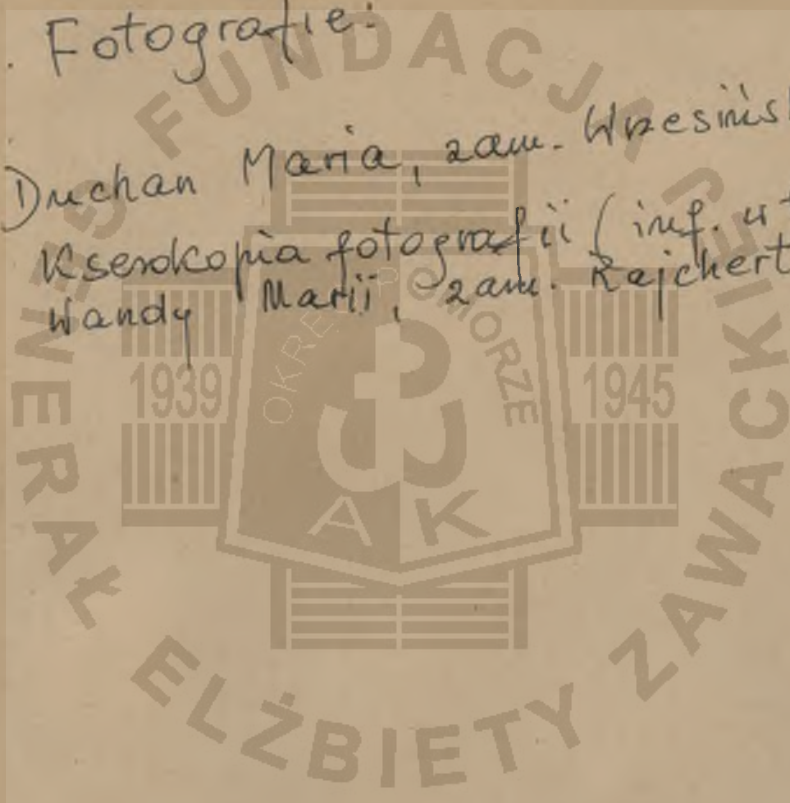 . Fotografie:
Duchan Maria, zam.
Kserokopia fotografii (inf.
Wandy Marii, zam. Rajchert
FUNDACJA GENERAŁ ELŻBIETY ZAWACKIEJ
OKRĘG POMORZE
1939
1945
AK